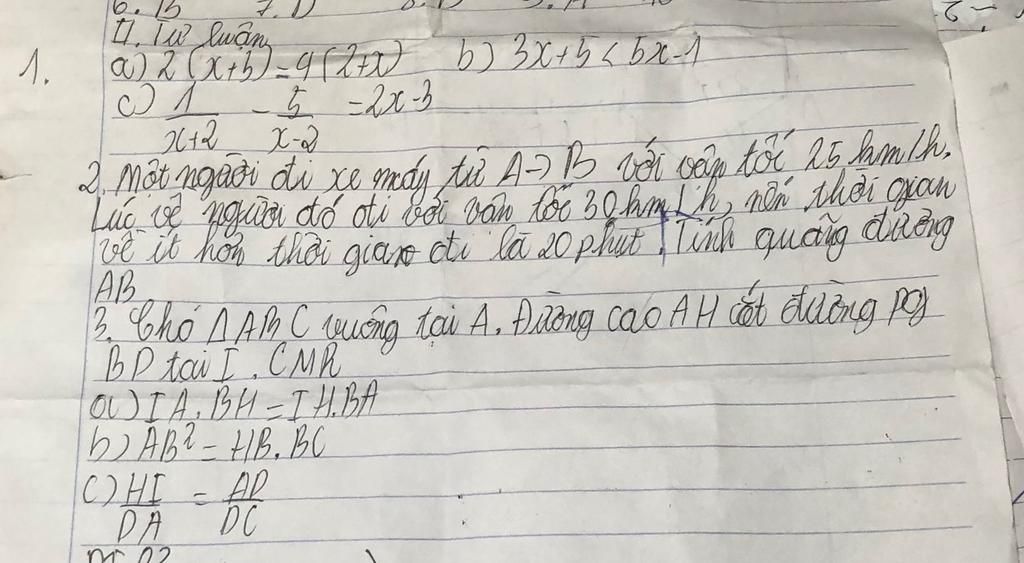 6. B 7. D
II. Tự luận
1.
a) 2(x+5)=4(2+x) b) 3x+5 < 5x-1
c) 1/(x+2) - 5/(x-2) = 2x-3
2. Một người đi xe máy từ A→B với vận tốc 25 km/h.
Lúc về người đó đi với vận tốc 30 km/h, nên thời gian
về ít hơn thời gian đi là 20 phút. Tính quãng đường
AB
3. Cho ΔABC vuông tại A. Đường cao AH cắt đường pg
BD tại I. CMR
a) IA.BH=IH.BA
b) AB²=HB.BC
c) HI/DA = AD/DC